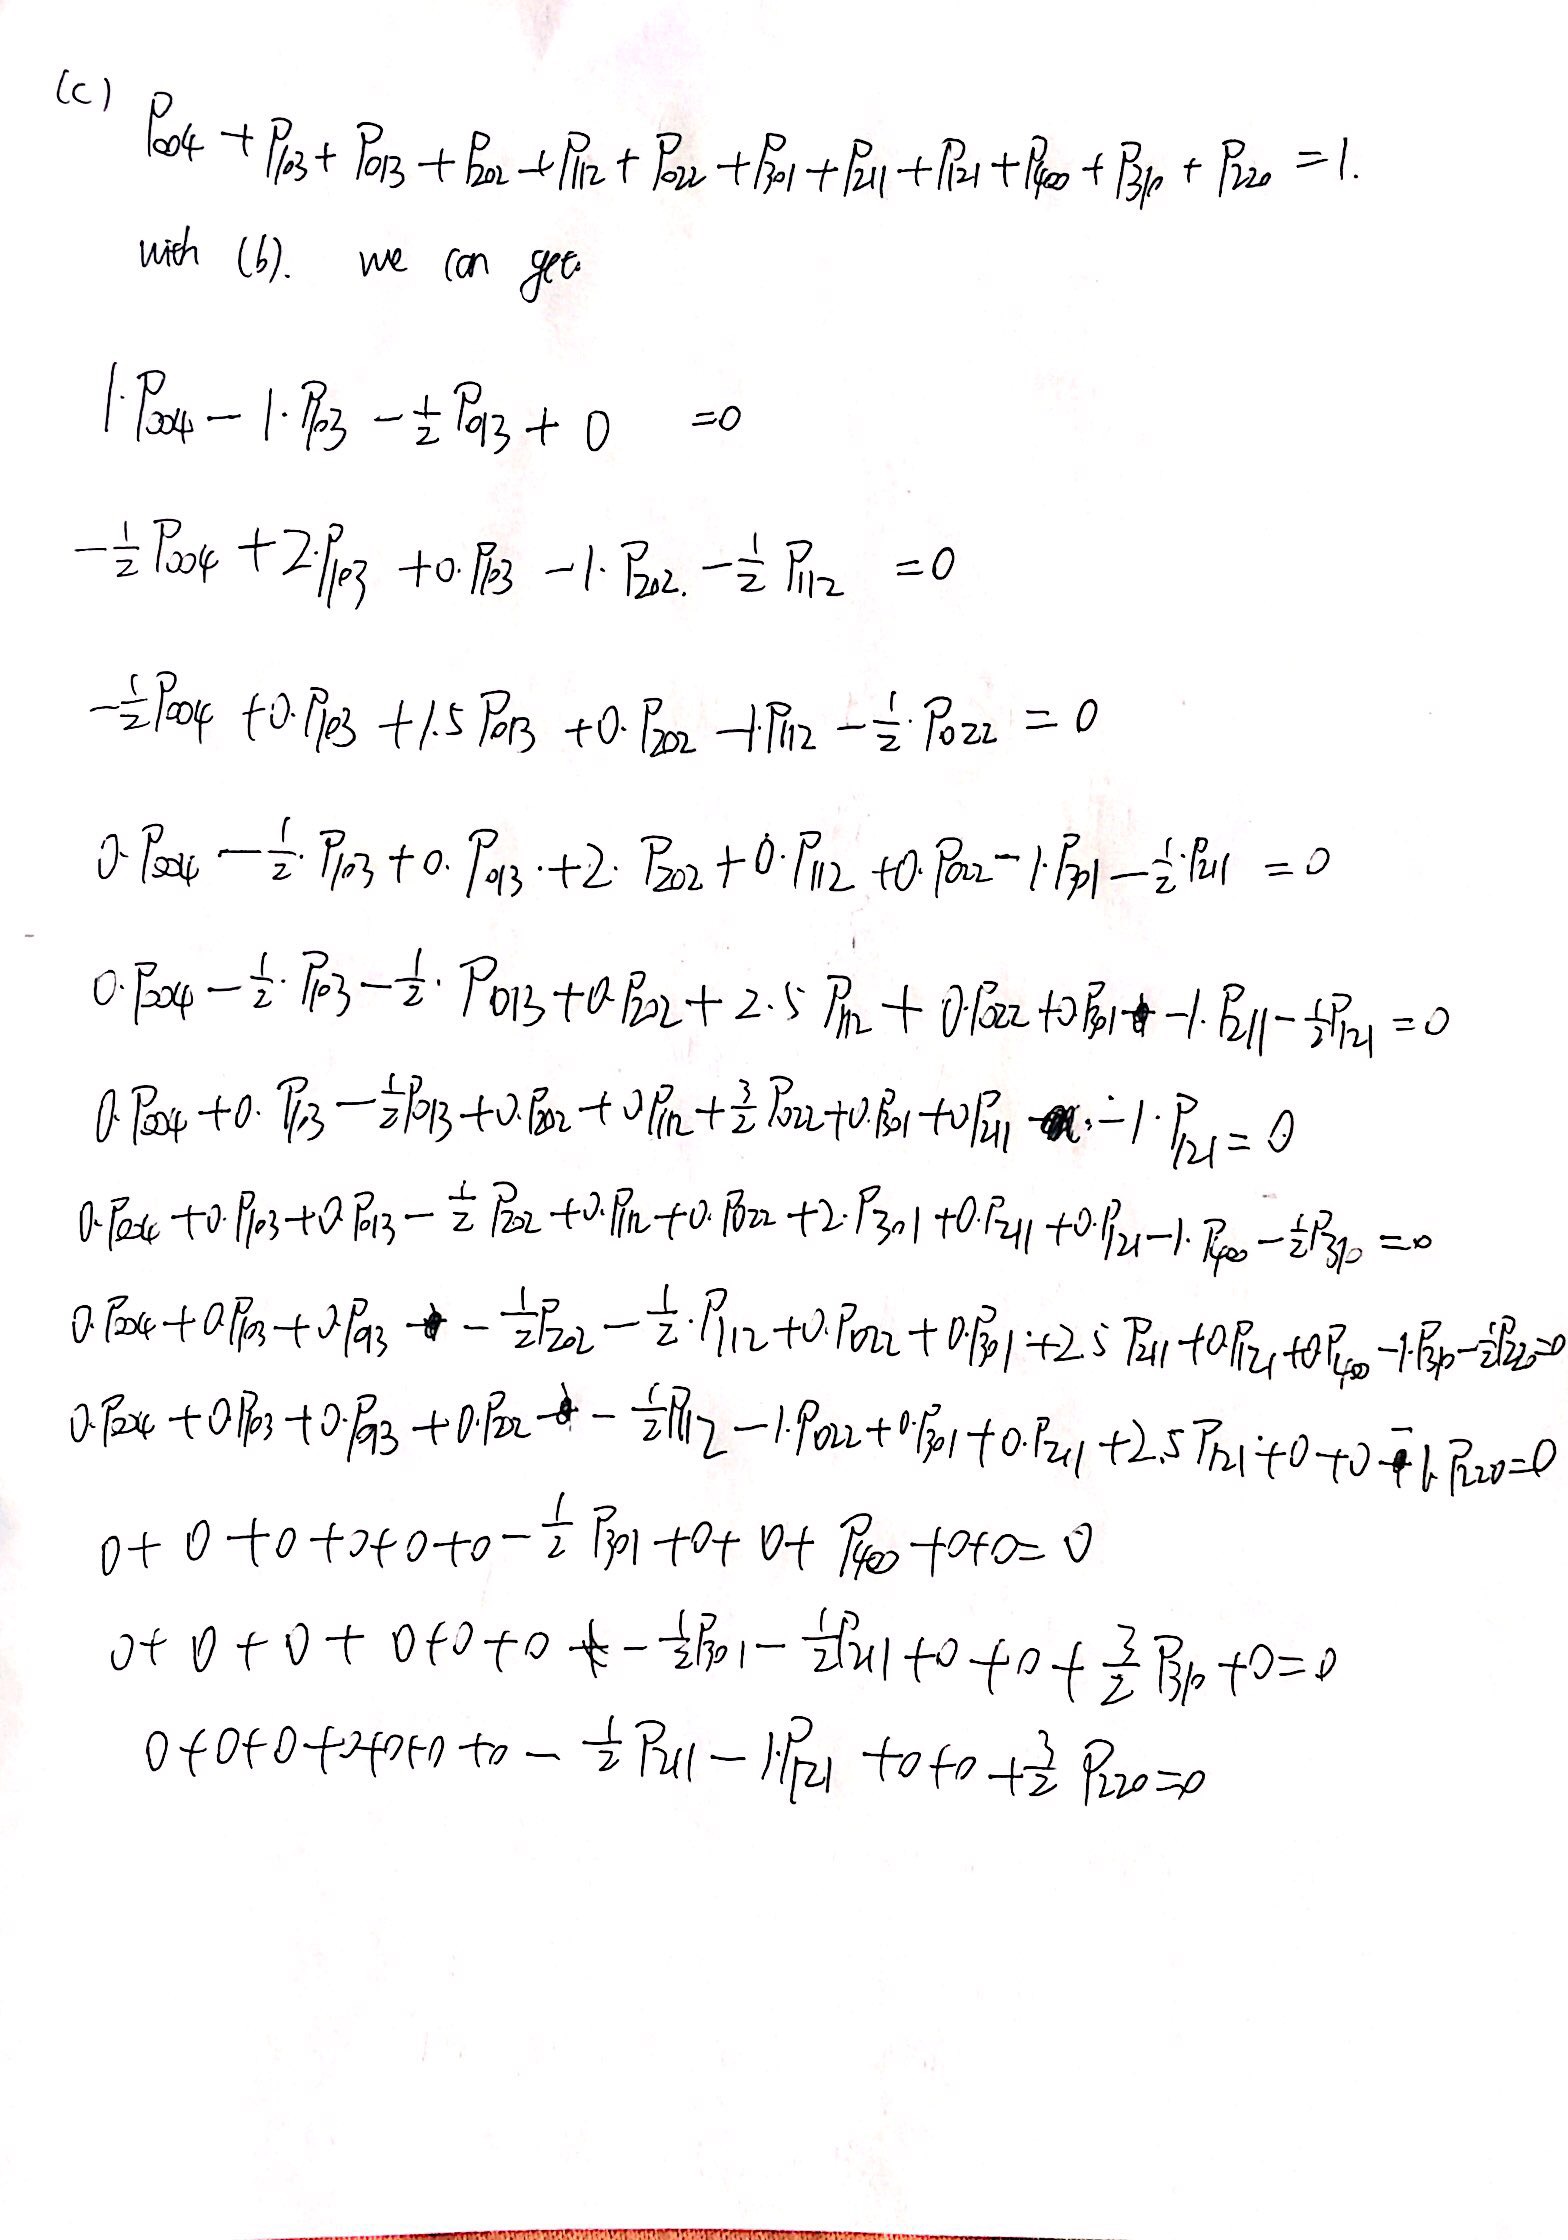 (c)
P004 + P103 + P013 + P202 + P112 + P022 + P301 + P211 + P121 + P400 + P310 + P220 = 1.
with (b). we can get
1·P004 − 1·P103 − 1/2 P013 + 0 =0
−1/2 P004 + 2·P103 +0·P103 −1·P202. −1/2 P112 =0
−1/2 P004 +0·P103 +1.5 P013 +0·P202 −1·P112 −1/2·P022 = 0
0·P004 −1/2·P103 +0·P013·+2·P202 +0·P112 +0·P022 −1·P301 −1/2·P211 =0
0·P004 −1/2·P103 −1/2·P013 +0·P202 + 2.5 P112 + 0·P022 +0P301 −1·P211 −1/2P121 =0
0·P004 +0·P103 −1/2P013 +0·P202 +0P112 +3/2 P022 +0·P301 +0P211 −1·P121 = 0
0·P004 +0·P103 +0·P013 −1/2 P202 +0·P112 +0·P022 +2·P301 +0·P211 +0·P121 −1·P400 −1/2P310 =0
0·P004 +0P103 +0P013 −1/2P202 −1/2·P112 +0·P022 +0·P301 +2.5 P211 +0P121 +0P400 −1·P310 −1/2P220=0
0·P004 +0P103 +0·P013 +0·P202 −1/2P112 −1·P022 +0·P301 +0·P211 +2.5 P121 +0 +0 −1·P220=0
0+ 0 +0 +0+0+0 −1/2 P301 +0+ 0+ P400 +0+0= 0
0+ 0 + 0 + 0+0+0 −1/2P301 −1/2P211 +0 +0 + 3/2 P310 +0=0
0+0+0+0+0+0 +0 −1/2 P211 −1·P121 +0+0 +3/2 P220=0